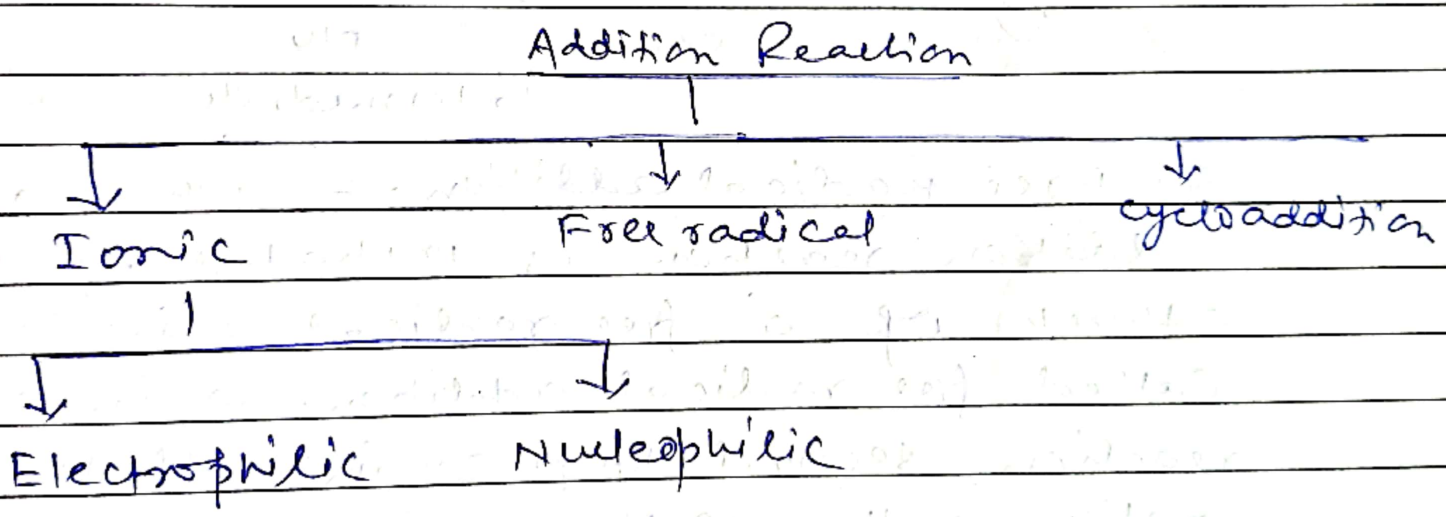 Addition Reaction
Ionic Free radical cycloaddition
Electrophilic Nucleophilic